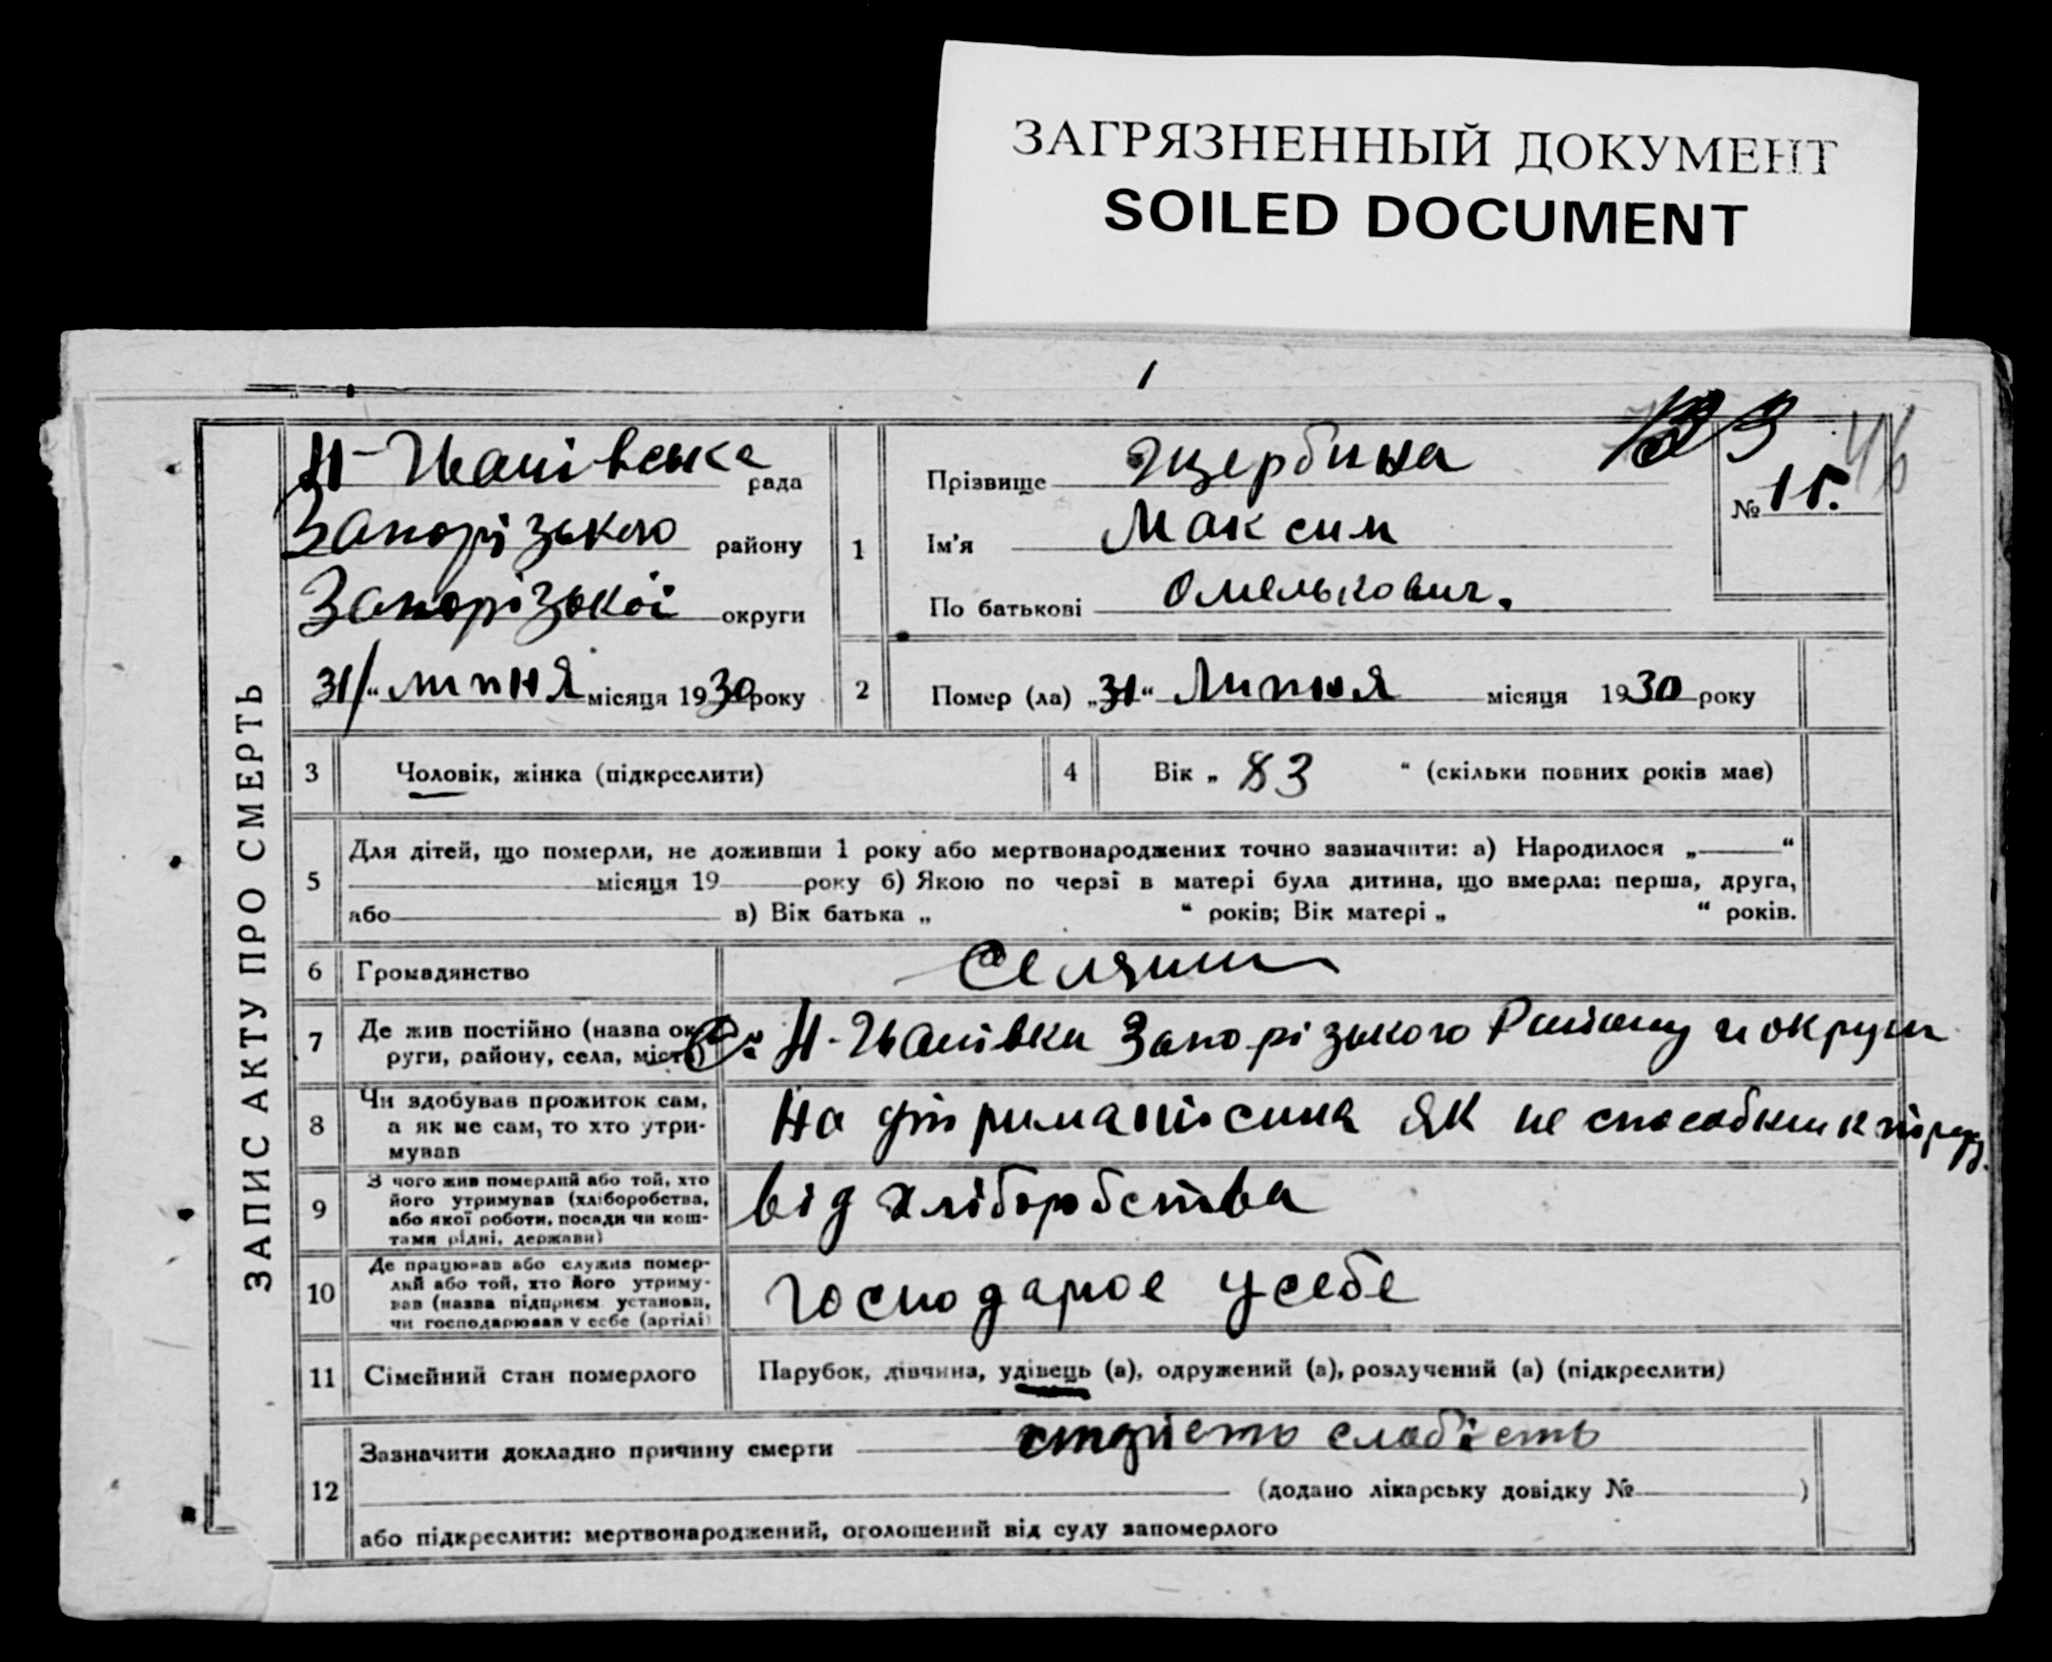 ЗАГРЯЗНЕННЫЙ ДОКУМЕНТ
SOILED DOCUMENT
1
46
ЗАПИС АКТУ ПРО СМЕРТЬ
рада
Запорізького району
Запорізької округи
„31“ липня місяця 1930 року
1
Прізвище Щербина
Ім'я Максим
По батькові Омелькович.
№ 15.
2
Помер (ла) „31“ Липня місяця 1930 року
3 Чоловік, жінка (підкреслити)
4 Вік „ 83 “ (скільки повних років має)
5 Для дітей, що померли, не доживши 1 року або мертвонароджених точно зазначити: а) Народилося „ “
місяця 19 року б) Якою по черзі в матері була дитина, що вмерла: перша, друга,
або в) Вік батька „ “ років; Вік матері „ “ років.
6 Громадянство Селянин
7 Де жив постійно (назва ок-
руги, району, села, міста)
Запорізького Району и округи
8 Чи здобував прожиток сам,
а як не сам, то хто утри-
мував
На утриманні сина як не способний к
9 З чого жив померлий або той, хто
його утримував (хліборобства,
або якої роботи, посади чи кош-
тами рідні, держави)
від хліборобства
10 Де працював або служив помер-
лий або той, хто його утриму-
вав (назва підприєм. установи,
чи господарював у себе (артілі)
господарює у себе
11 Сімейний стан померлого Парубок, дівчина, удівець (а), одружений (а), розлучений (а) (підкреслити)
12 Зазначити докладно причину смерти слабість
(додано лікарську довідку № )
або підкреслити: мертвонароджений, оголошений від суду запомерлого